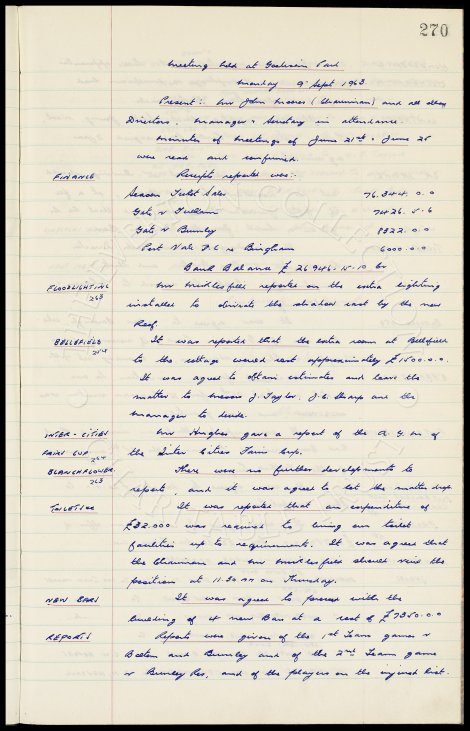 270
Meeting held at Goodison Park
Monday 9th Sept 1963
Present:- Mr John Moores (Chairman) and all other
Directors. Manager & Secretary in attendance.
Minutes of Meetings of June 21st & June 25
were read and confirmed.
FINANCE Receipts reported were:-
Season Ticket Sales 76.344.0.0
Gate v Fulham 7426.5.6
Gate v Burnley 8322.0.0
Port Vale F.C. re Bingham 6000.0.0
Bank Balance £26946.15.10 Cr
FLOODLIGHTING Mr Micklesfield reported on the extra lighting
263 installed to eliminate the shadow cast by the new
Roof.
BELLEFIELD It was reported that the extra room at Bellefield
264 to the cottage would cost approximately £1500.0.0.
It was agreed to obtain estimates and leave the
matter to Messrs J. Taylor, J.C. Sharp and the
Manager to decide.
INTER-CITIES Mr Hughes gave a report of the A.G.M of
FAIRS CUP the Inter Cities Fairs Cup.
264
BLANCHFLOWER There were no further developments to
263 report, and it was agreed to let the matter drop.
TOILETING It was reported that an expenditure of
£32.000 was required to bring our toilet
facilities up to requirements. It was agreed that
the Chairman and Mr Micklesfield should view the
position at 11.30 AM on Thursday.
NEW BARS It was agreed to proceed with the
building of 4 new Bars at a cost of £7350.0.0
REPORTS Reports were given of the 1st Team games v
Bolton and Burnley and of the 2nd Team game
v Burnley Res. and of the players on the injured list.